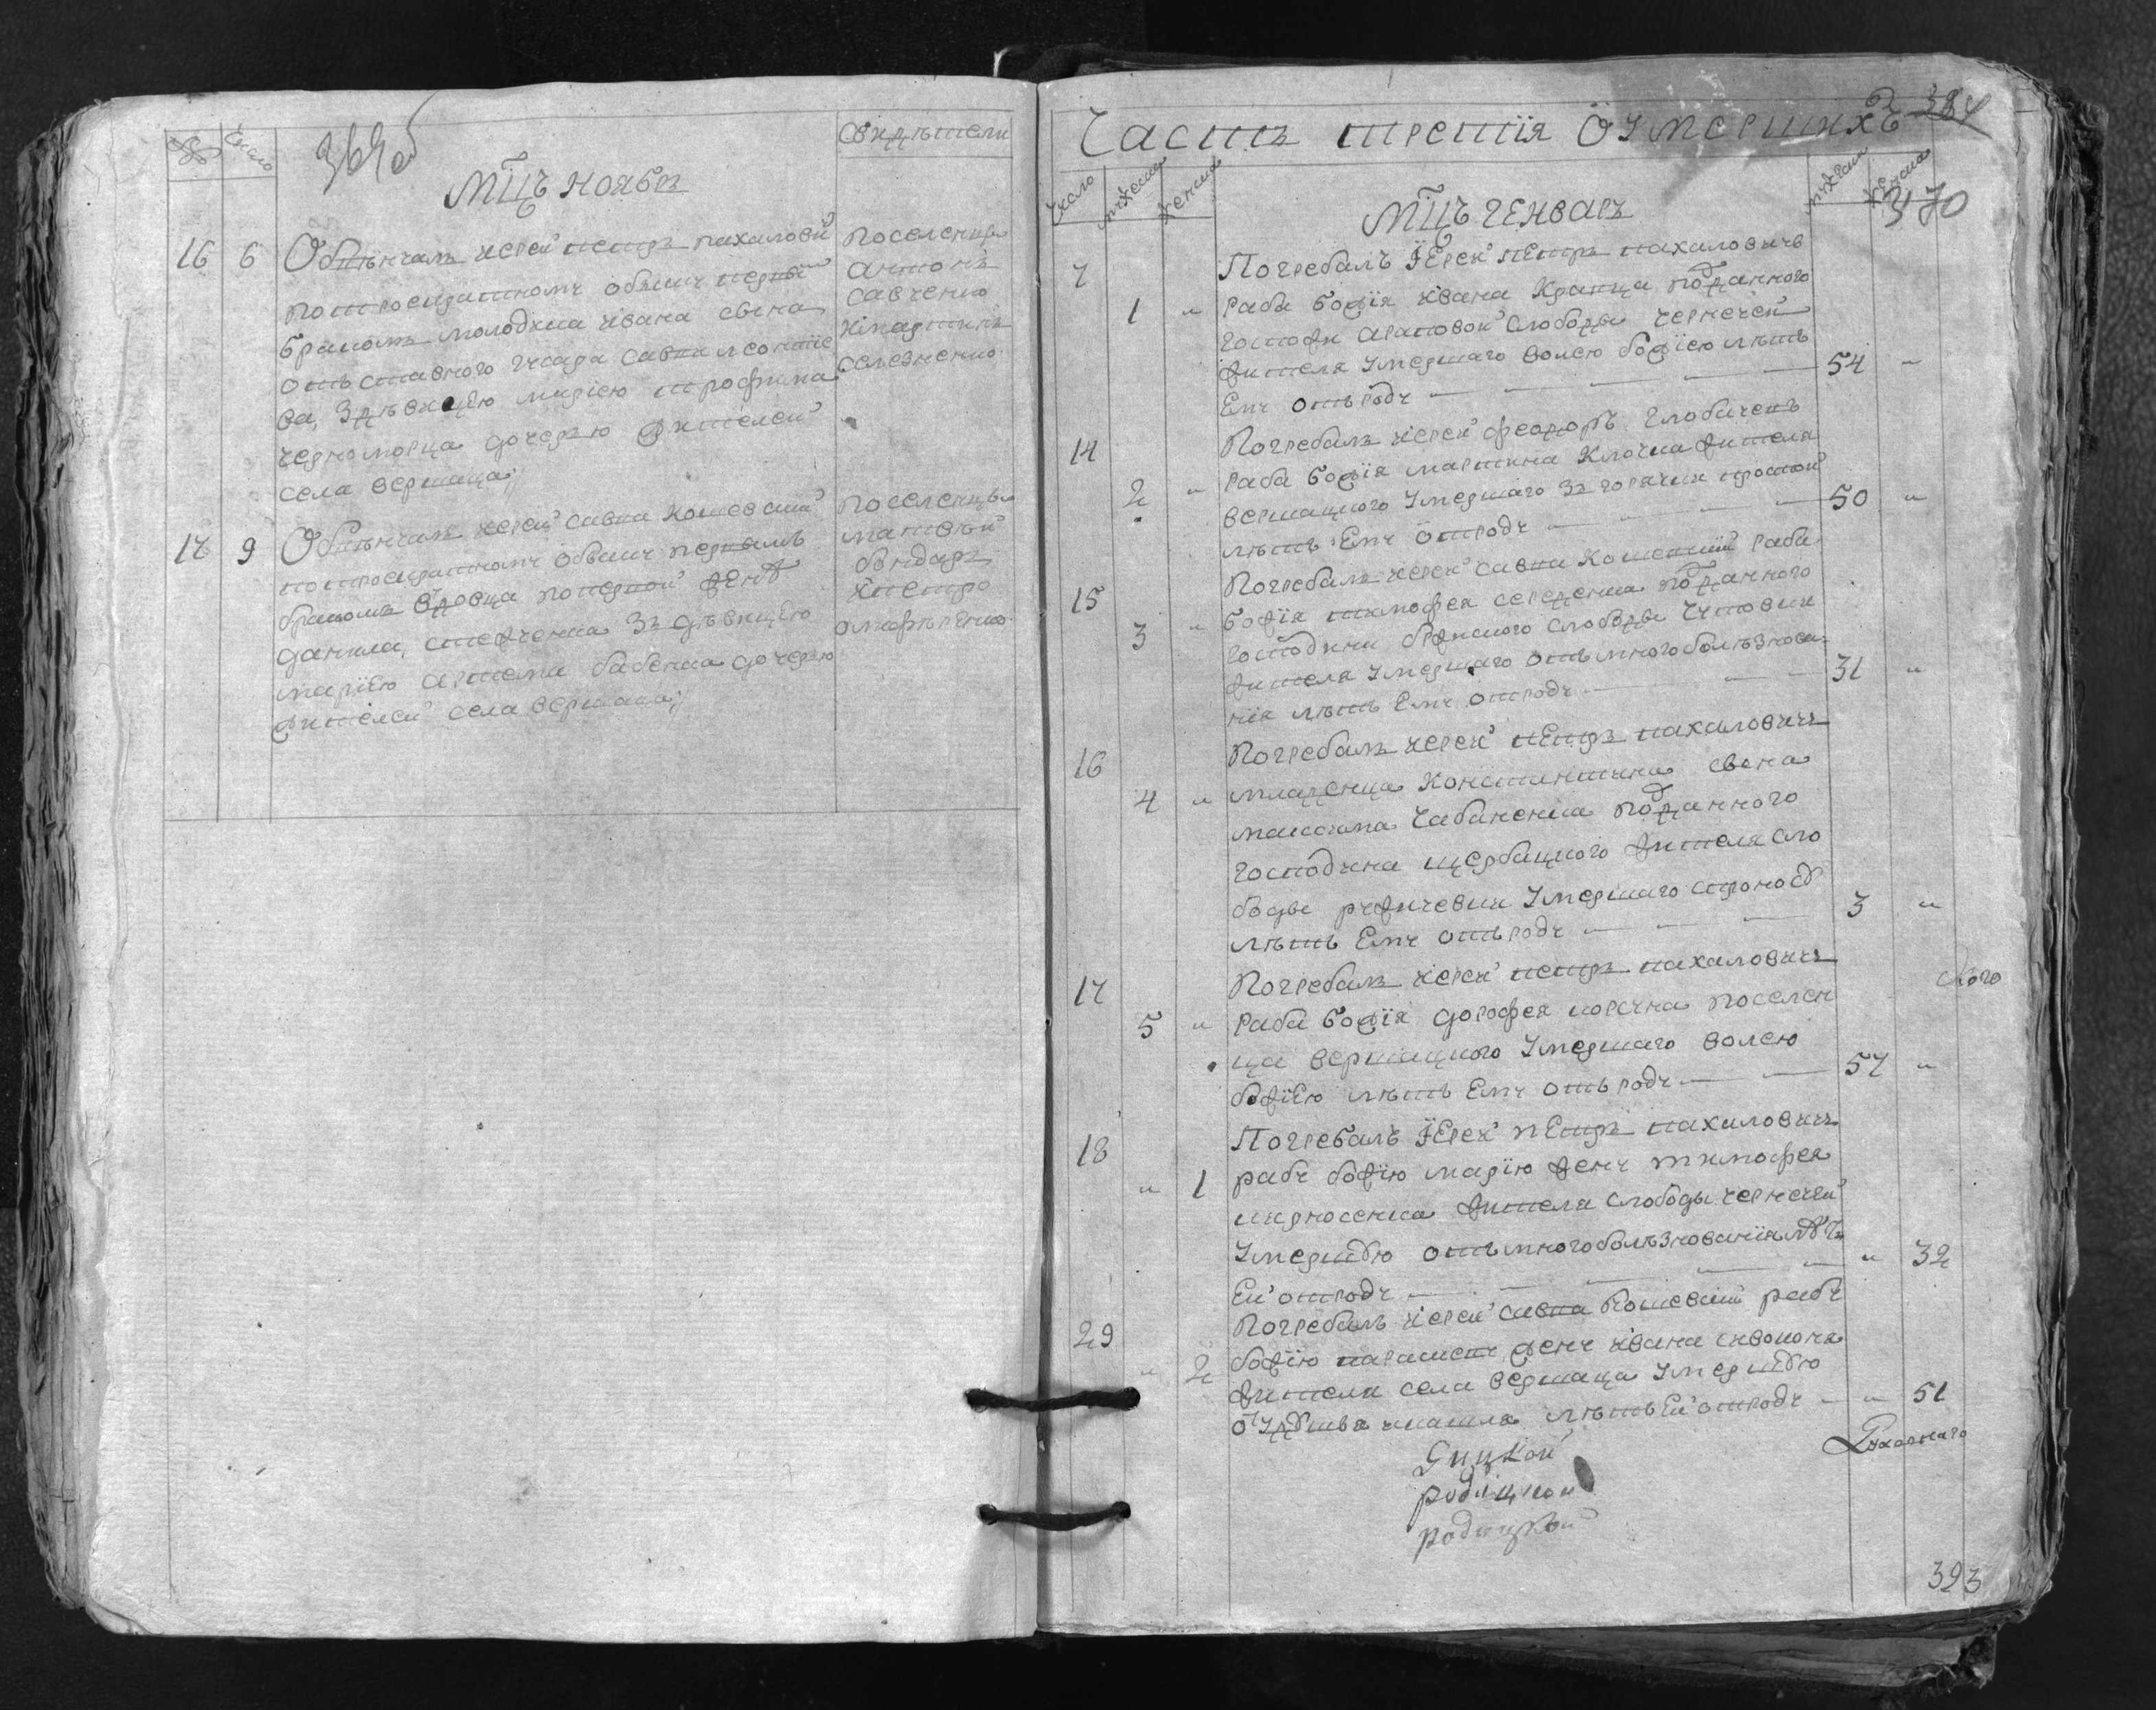 № число 369об свидѣтели
Мцъ ноябрь
16 6 Обвѣнчалъ иерей петръ пахаловъ
потроекратномъ обыску первымъ
бракомъ молодика ивана сына
отъставного гусара савы леонтіе
ва, здѣвицею марією трофима
черноморца дочерью жителей
села вершаца
поселенцы
антонъ
савченко
имартинъ
селезненко
17 9 Обвѣнчалъ иерей савва кошевский
потроекратномъ обыску первымъ
бракомъ вдовца попервой женѣ
данила, стефченка зъ дѣвицею
марією артема бабенка дочерью
жителей села вершаца
поселенцы
матвѣй
бондарь
ипетро
Часть третія Оумершихъ 384
число мужеска женска мужеска женска
370
Мцъ генварь
7 Погребалъ Іерей петръ пахаловичъ
1 " раба божія ивана кравца подданного
госпожи слободы чернечей
жителя умершаго волею божіею лѣтъ
Ему отъроду 54 "
14 Погребалъ иерей феодоръ глобаченъ
2 " раба божія мартина ключка жителя
вершацкого умершаго зъ горячки простой
лѣтъ Ему отроду 50 "
15 Погребалъ иерей савва кошевский раба
3 " божія тимофея середенка подданного
господина слободы чутовки
жителя умершаго отъ многоболѣзнова
нія лѣтъ Ему отроду 31 "
16 Погребалъ иерей петръ пахаловичъ
4 " младенца константина сына
максима чабаненка подданного
господина щербацкого жителя сло
боды умершаго
лѣтъ Ему отъроду 3 "
17 Погребалъ иерей петръ пахаловичъ
5 " раба божія дорофея поселен
ца вершацкого умершаго волею
божіею лѣтъ Ему отъроду 57 "
18 Погребалъ Іерей петръ пахаловичъ
" 1 рабу божію марію жену тимофея
жителя слободы чернечей
умершую отъ многоболѣзнованія лѣтъ
Ей отроду " 32
29 Погребалъ иерей савва кошевский рабу
" 2 божію жену ивана
жителя села вершаца умершую
отъ кашля лѣтъ Ей отроду " 51
393